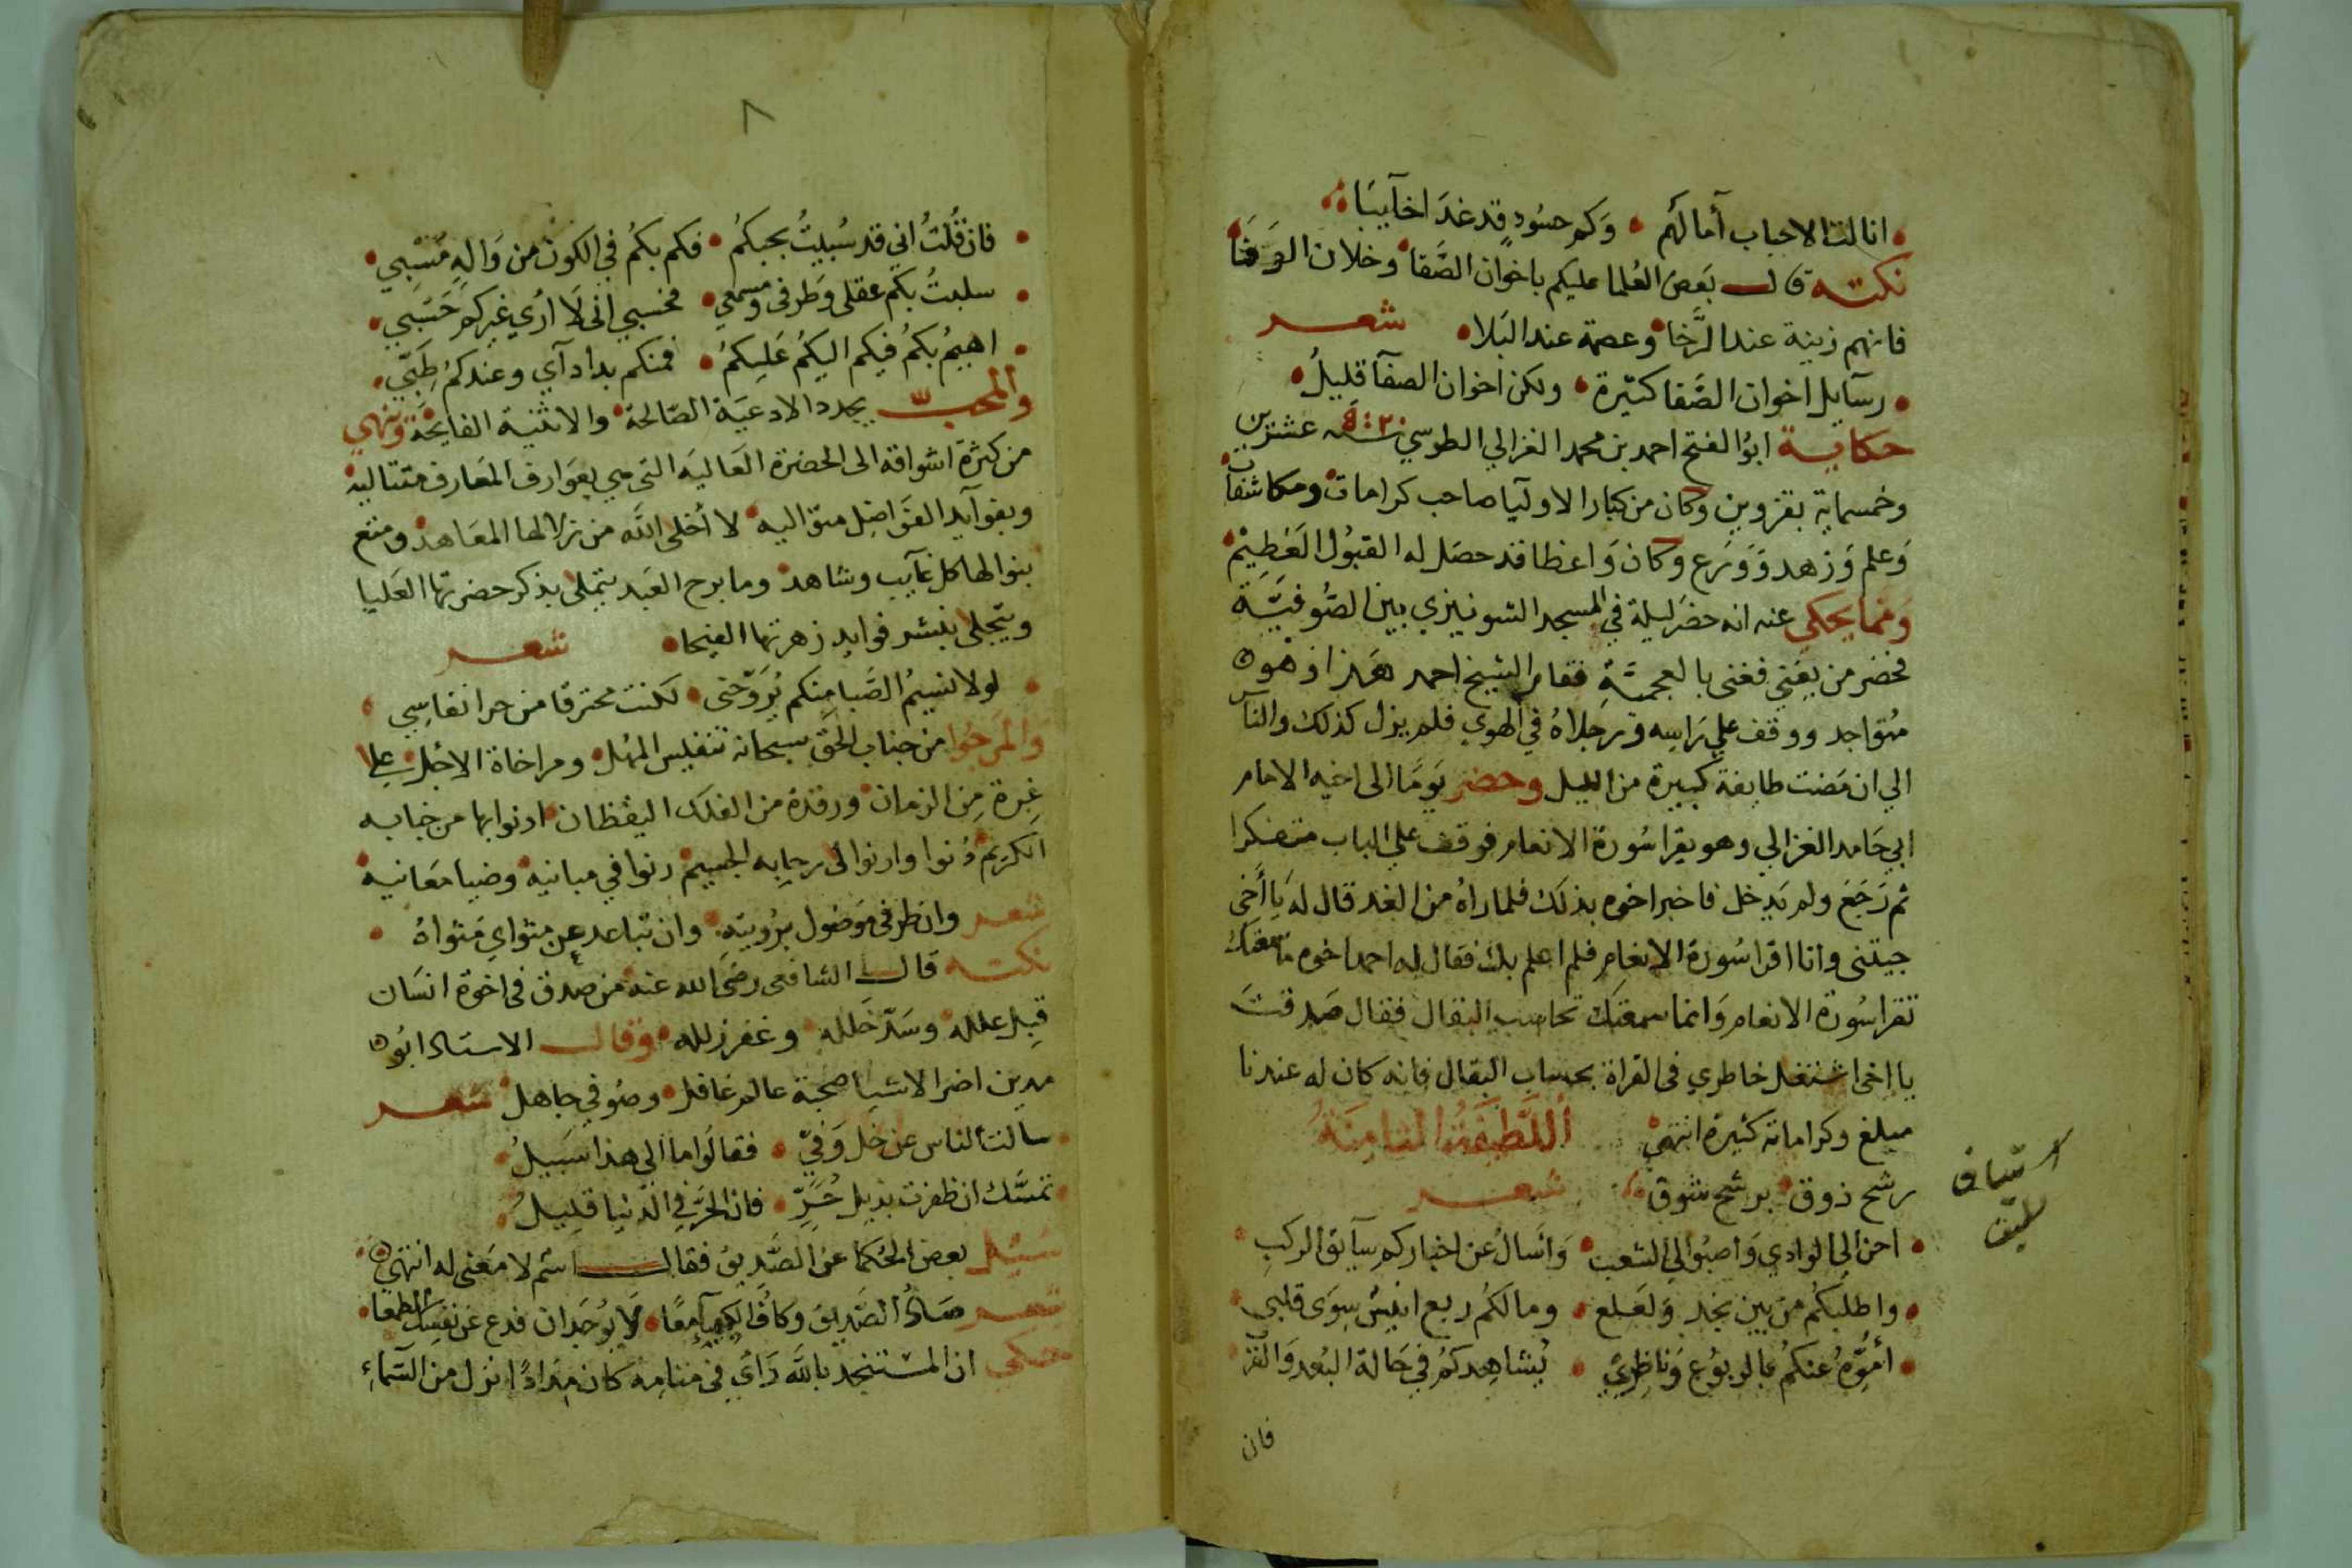 انالت الاحباب آمالهم • وكم حسود قد غدا خآيبا
نكته قال بعض العلما عليكم باخوان الصفا وخلان الوفا
فانهم زينة عند الرخا وعصمة عند البلا • شعر
• رسآيل اخوان الصفا كثيرة • ولكن اخوان الصفآ قليل •
حكاية ابو الفتح احمد بن محمد الغزالي الطوسي ٥٢٠ سنه عشرين
وخمسماية بقزوين وكان من كبار الاوليآ صاحب كرامات ومكاشفات
وعلم وزهد وورع وكان واعظا قد حصل له القبول العظيم
ومما يحكي عنه انه حضر ليلة في المسجد الشونيزي بين الصوفية
فحضر من يغني فغنى بالعجمية فقام الشيخ احمد هذا وهو
متواجد ووقف علي راسه ورجلاه في الهوي فلم يزل كذلك والناس
الي ان مضت طايفة كبيرة من الليل وحضر يوما الى اخيه الامام
ابي حامد الغزالي وهو يقرا سورة الانعام فوقف علي الباب متفكرا
ثم رجع ولم يدخل فاخبر اخوه بذلك فلما راه من الغد قال له يا أخى
جيتنى وانا اقرا سورة الانعام فلم اعلم بك فقال له احمد اخوه ما سمعتك
تقرا سورة الانعام وانما سمعتك تحاسب البقال فقال صدقت
يا اخى اشتغل خاطري فى القراة بحساب البقال فانه كان له عندنا
مبلغ وكراماته كثيرة انتهي اللطيفة الثامنة
رشح ذوق • برشح شوق شعر
• احن الي الوادي واصبوا لي الشعب • واسال عن اخباركم سآيق الركب
• واطلبكم من بين نجد ولعلع • ومالكم ربع انيس سوى قلبي
• أموه عنكم بالربوع وناظري • يشاهدكم في حالة البعد والقر
فان
٨
• فان قلت اني قد سبيت بحبكم • فكم بكم في الكون من واله مسبي •
• سلبت بكم عقلى وطرفى ومسمعي • فحسبي انى لا ارى غيركم حسبي •
• اهيم بكم فيكم اليكم عليكم • فمنكم بدا دآي وعندكم طبي •
والمحب يجدد الادعية الصالحة والاثنية الفايحة وينهي
من كثرة اشواقه الى الحضرة العاليه التى هي بعوارف المعارف متتاليه
وبفوآيد الفواضل متواليه لا أخلى الله من نزالها المعاهد ومتع
بنوالها كل غآيب وشاهد وما برح العبد يتملى بذكر حضرتها العليا
ويتجلى بنشر فوايد زهرتها الفيحا • شعر
• لولا نسيم الصبا منكم يروحنى • لكنت محترقا من حر انفاسي
والمرجوا من جناب الحق سبحانه تنفيس المهل • ومراخاة الاجل علي
غرة من الزمان ورقدة من الفلك اليقظان ادنوا بها من جنابه
الكريم دنوا وارنوا الى رحابه الجسيم رنوا في مبانيه وضيا معانيه
شعر وان طرفى موصول برويته وان تباعد عن مثواي مثواه •
نكته قال الشافعى رضي الله عنه من صدق فى اخوة انسان
قبل علله وسد خلله وغفر زلله • وقال الاستاد ابو
مدين اضر الاشيا صحبة عالم غافل • وصوفي جاهل شعر
• سالت الناس عن خل وفي • فقالوا ما الي هذا سبيل •
• تمسك ان ظفرت بذيل حر • فان الحر في الدنيا قليل •
سيل بعض الحكما عن الصديق فقال اسم لا معنى له انتهي
شعر صاد الصديق وكاف الكيميآ معا • لا يوجدان فدع عن نفسك الطمعا •
حكي ان المستنجد بالله رآي في منامه كان نزل من السماء